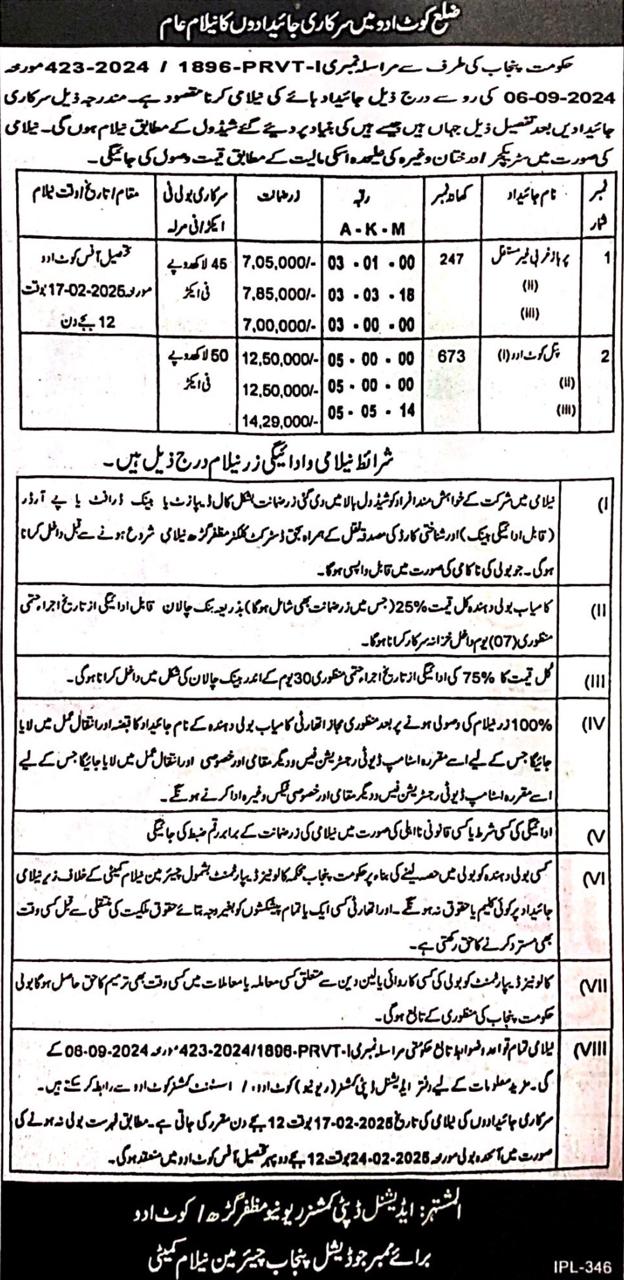 ضلع کوٹ ادو میں سرکاری جائیدادوں کا نیلام عام
حکومت پنجاب کی طرف سے مراسلہ نمبری 423-2024 / 1896-PRVT-I مورخہ
06-09-2024 کی رو سے درج ذیل جائیداد ہائے کی نیلامی کرنا مقصود ہے۔ مندرجہ ذیل سرکاری
جائیدادیں بعد تفصیل ذیل جہاں ہیں جیسے ہیں کی بنیاد پر دیئے گئے شیڈول کے مطابق نیلام ہوں گی۔ نیلامی
کی صورت میں سٹرکچر / درختان وغیرہ کی علیحدہ اسکی مالیت کے مطابق قیمت وصول کی جائیگی۔
نمبر شمار | نام جائیداد | کھاتہ نمبر | رقبہ A - K - M | زر ضمانت | سرکاری بولی فی ایکڑ / فی مرلہ | مقام / تاریخ / وقت نیلام
1 | پرہاڑ غربی غیر مستقل | 247 | 03 - 01 - 00 | 7,05,000/- | 45 لاکھ روپے | تحصیل آفس کوٹ ادو
(ii) | 03 - 03 - 18 | 7,85,000/- | فی ایکڑ | مورخہ 17-02-2025 بوقت
(iii) | 03 - 00 - 00 | 7,00,000/- | 12 بجے دن
2 | کوٹ ادو (i) | 673 | 05 - 00 - 00 | 12,50,000/- | 50 لاکھ روپے
(ii) | 05 - 00 - 00 | 12,50,000/- | فی ایکڑ
(iii) | 05 - 05 - 14 | 14,29,000/-
شرائط نیلامی و ادائیگی زر نیلام درج ذیل ہیں۔
(I نیلامی میں شرکت کے خواہش مند افراد کو شیڈول بالا میں دی گئی زر ضمانت بشکل کال ڈیپازٹ یا بینک ڈرافٹ یا پے آرڈر
(قابل ادائیگی بینک) اور شناختی کارڈ کی مصدقہ نقل کے ہمراہ بحق ڈسٹرکٹ کلکٹر مظفر گڑھ نیلامی شروع ہونے سے قبل داخل کرانا
ہوگی۔ جو بولی کی ناکامی کی صورت میں قابل واپسی ہوگا۔
(II کامیاب بولی دہندہ کل قیمت 25% (جس میں زر ضمانت بھی شامل ہوگا) بذریعہ بنک چالان قابل ادائیگی از تاریخ اجراء حتمی
منظوری (07) یوم داخل خزانہ سرکار کرانا ہوگا۔
(III کل قیمت کا 75% کی ادائیگی از تاریخ اجراء حتمی منظوری 30 یوم کے اندر بینک چالان کی شکل میں داخل کرانا ہوگی۔
(IV 100% زر نیلام کی وصولی ہونے پر بعد منظوری مجاز اتھارٹی کامیاب بولی دہندہ کے نام جائیداد کا قبضہ اور انتقال عمل میں لایا
جائیگا جس کے لیے اسے مقررہ اسٹامپ ڈیوٹی رجسٹریشن فیس و دیگر مقامی اور خصوصی اور انتقال عمل میں لایا جائیگا جس کے لیے
اسے مقررہ اسٹامپ ڈیوٹی رجسٹریشن فیس و دیگر مقامی اور خصوصی ٹیکس وغیرہ ادا کرنے ہونگے۔
(V ادائیگی کی کسی شرط یا کسی قانونی نااہلی کی صورت میں نیلامی کی زر ضمانت کے برابر رقم ضبط کی جائیگی
(VI کسی بولی دہندہ کو بولی میں حصہ لینے کی بناء پر حکومت پنجاب محکمہ کالونیز ڈیپارٹمنٹ بشمول چیئرمین نیلام کمیٹی کے خلاف زیر نیلامی
جائیداد پر کوئی کلیم یا حقوق نہ ہونگے۔ اور اتھارٹی کسی ایک یا تمام پیشکشوں کو بغیر وجہ بتائے حقوق ملکیت کی منتقلی سے قبل کسی وقت
بھی مسترد کرنے کا حق رکھتی ہے۔
(VII کالونیز ڈیپارٹمنٹ کو بولی کی کسی کاروائی یا لین دین سے متعلق کسی معاملہ یا معاملات میں کسی وقت بھی ترمیم کا حق حاصل ہوگا بولی
حکومت پنجاب کی منظوری کے تابع ہوگی۔
(VIII نیلامی تمام قواعد و ضوابط تابع حکومتی مراسلہ نمبری 423-2024/1896-PRVT-I مورخہ 06-09-2024 کے
گی۔ مزید معلومات کے لیے دفتر ایڈیشنل ڈپٹی کمشنر (ریونیو) کوٹ ادو، / اسسٹنٹ کمشنر کوٹ ادو سے رابطہ کر سکتے ہیں۔
سرکاری جائیدادوں کی نیلامی کی تاریخ 17-02-2025 بوقت 12 بجے دن مقرر کی جاتی ہے۔ مطابق فہرست بولی نہ ہونے کی
صورت میں آئندہ بولی مورخہ 24-02-2025 بوقت 12 بجے دوپہر تحصیل آفس کوٹ ادو میں منعقد ہوگی۔
المشتہر: ایڈیشنل ڈپٹی کمشنر ریونیو مظفر گڑھ / کوٹ ادو
برائے ممبر جوڈیشل پنجاب چیئرمین نیلام کمیٹی
IPL-346